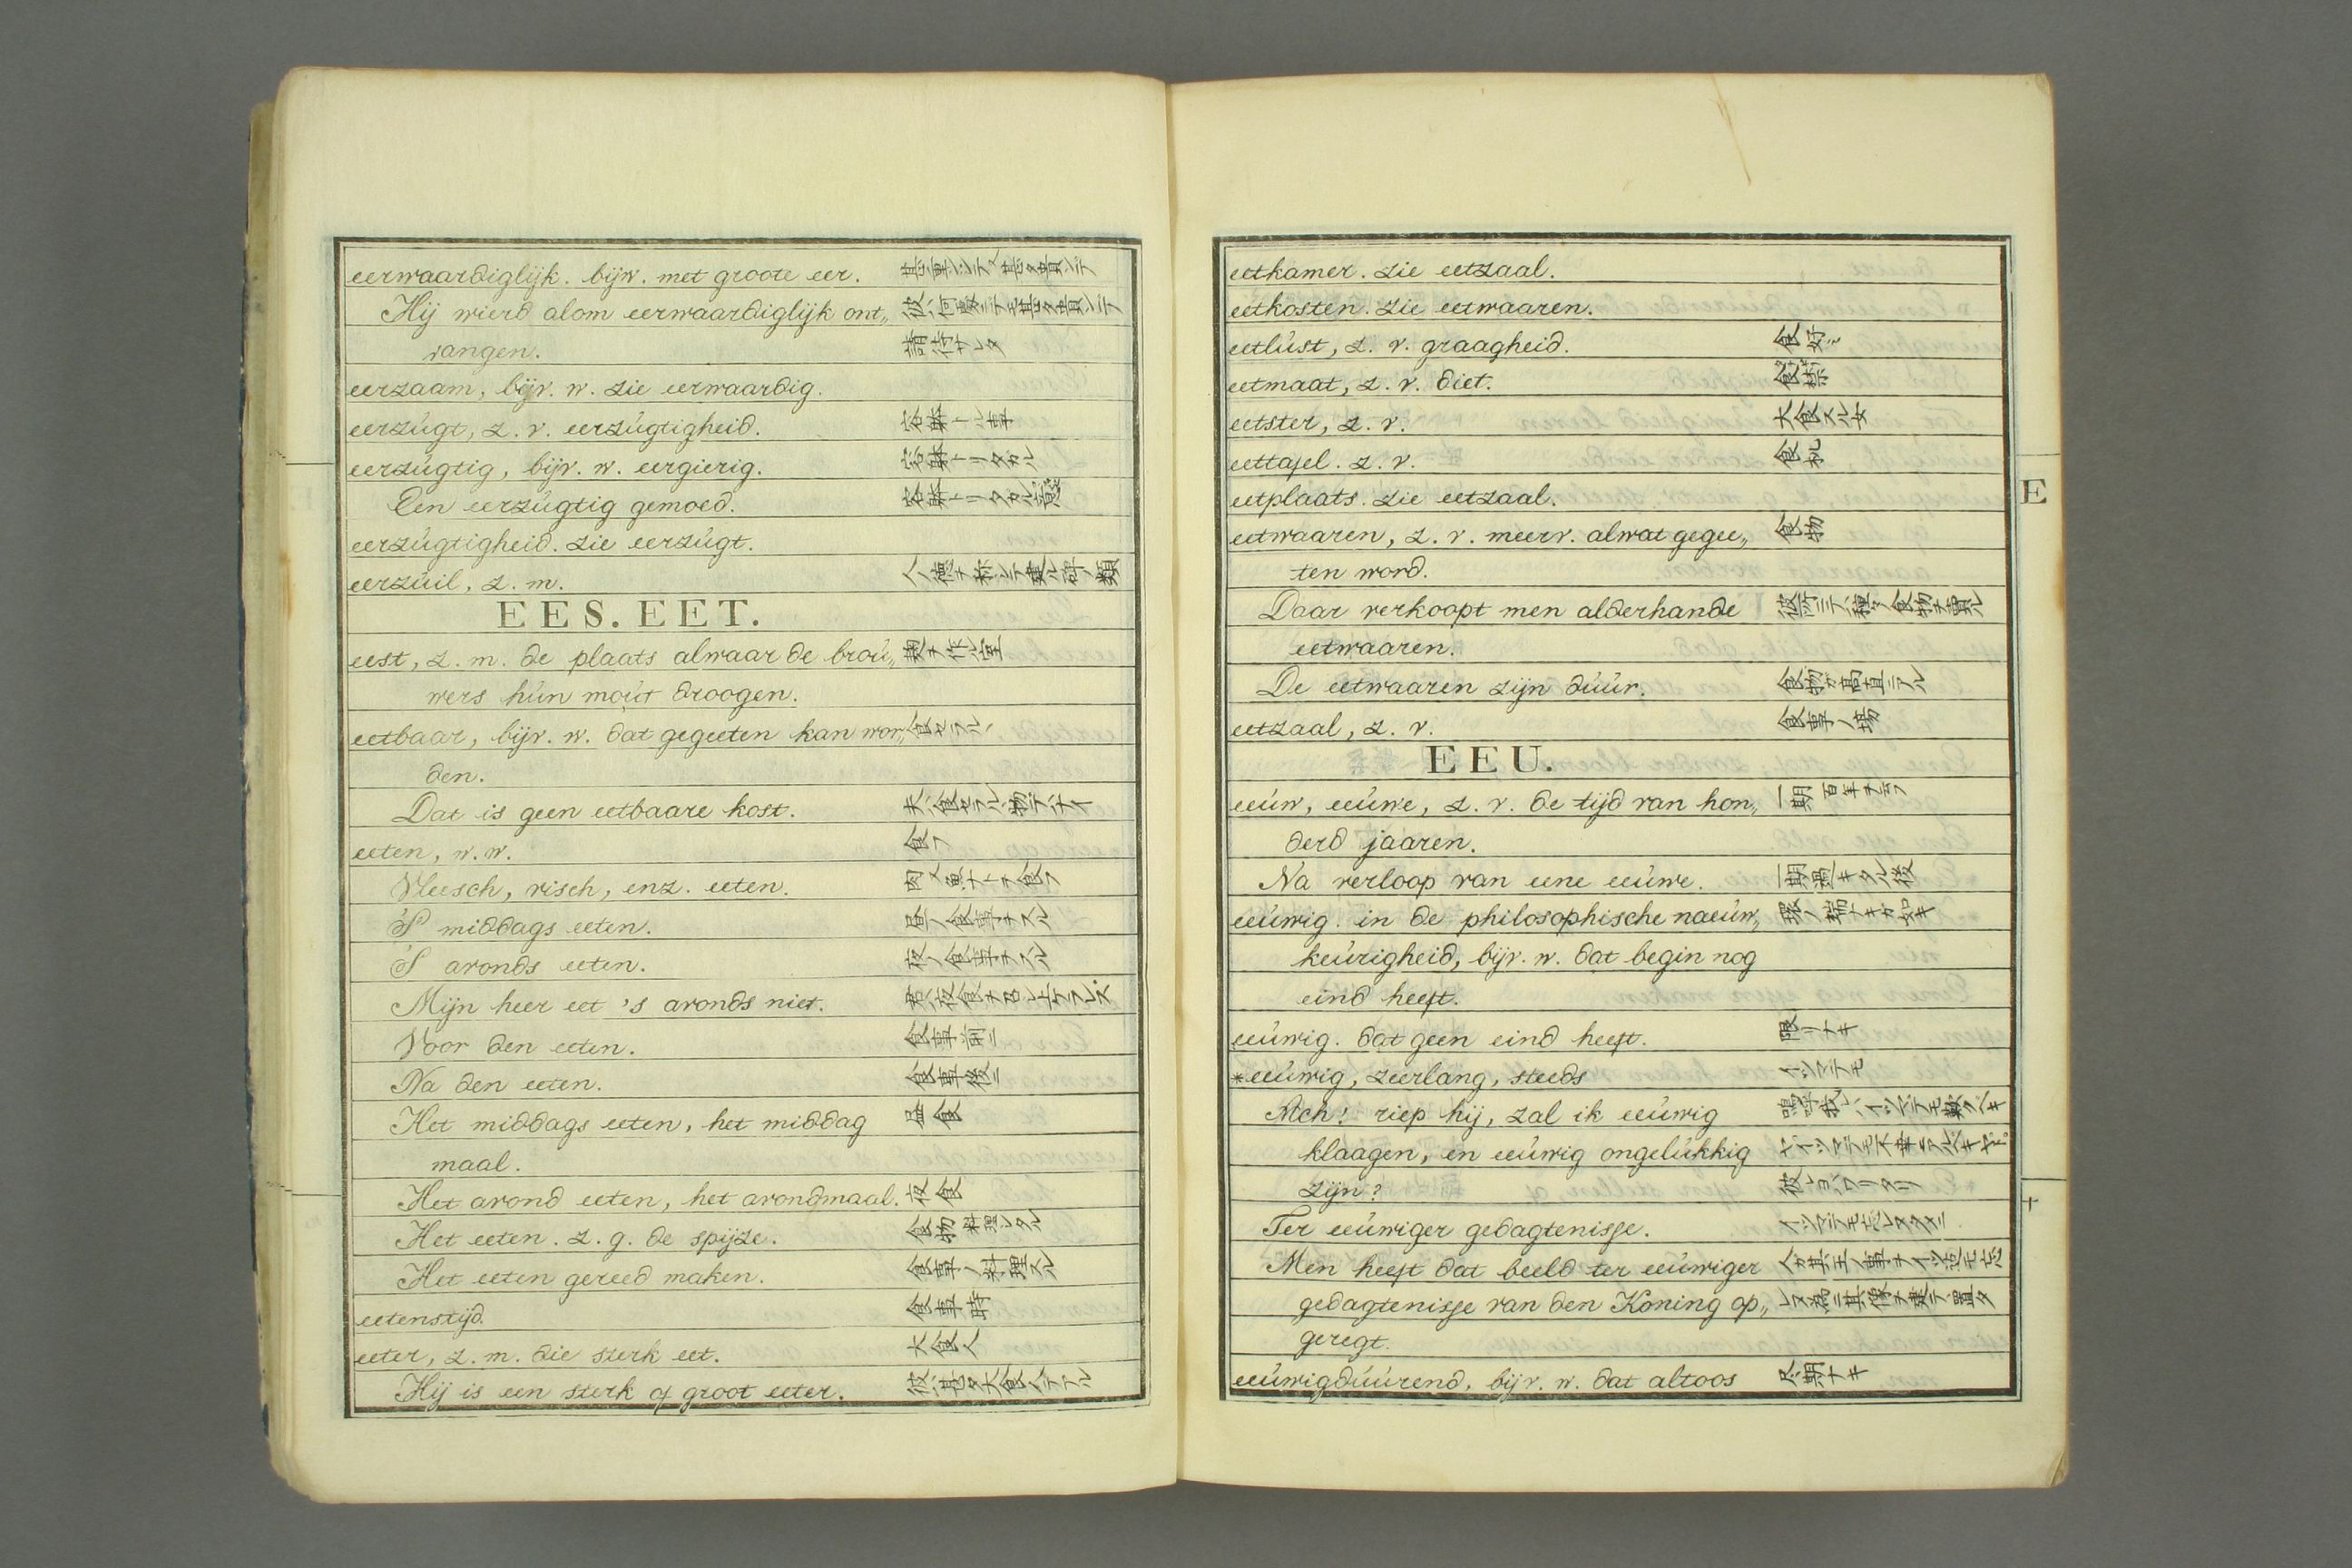 eerwaardiglijk. bijw. met groote eer. 甚重ンシテ 甚タ貴ンテ
Hij wierd alom eerwaardiglijk ont„ 彼ハ何處ニテモ甚タ貴ンテ
vangen. 請待サレタ
eerzaam, bijv. w. zie eerwaardig.
eerzúgt, z. v. eerzúgtigheid.
eerzúgtig, bijv. w. eergierig.
Een eerzúgtig gemoed.
eerzúgtigheid. zie eerzúgt.
eerzúil, z. m. 人ノ徳ヲ称シテ建ル碑ノ類
EES. EET.
eest, z. m. de plaats alwaar de broú„ 麹ヲ作ル室
wers hún moút droogen.
eetbaar, bijv. w. dat gegeeten kan wor„ 食セラルヽ
den.
Dat is geen eetbaare kost. 夫ハ食セラルヽ物デナイ
eeten, w. w. 食フ
Vleesch, visch, enz. eeten. 肉ヤ魚ナトヲ食フ
'S middags eeten. 昼ノ食事ヲスル
'S avonds eeten. 夜ノ食事ヲスル
Mijn heer eet 's avonds niet. 君ハ夜食ヲ召シ上ケラレズ
Voor den eeten. 食事前ニ
Na den eeten. 食事後ニ
Het middags eeten, het middag 昼食
maal.
Het avond eeten, het avondmaal. 夜食
Het eeten. z. g. de spijze. 食物 料理シタル
Het eeten gereed maken. 食事ノ料理スル
eetenstijd. 食事時
eeter, z. m. die sterk eet. 大食人
Hij is een sterk of groot eeter. 彼ハ甚タ大食人デアル
eetkamer. zie eetzaal.
eetkosten. zie eetwaaren.
eetlúst, z. v. graagheid. 食好ミ
eetmaat, z. v. diet. 食禁
eetster, z. v. 大食スル女
eettafel. z. v. 食机
eetplaats. zie eetzaal.
E
eetwaaren, z. v. meerv. alwat gegee„ 食物
ten word.
Daar verkoopt men alderhande 彼所ニテハ種々ノ食物ヲ賣ル
eetwaaren.
De eetwaaren zijn dúúr. 食物ガ高直ニアル
eetzaal, z. v. 食事ノ場
EEU.
eeúw, eeúwe, z. v. de tijd van hon„ 一期 百年ヲ云フ
derd jaaren.
Na verloop van eene eeúwe. 一期過キタル後
eeúwig. in de philosophische naeúw„ 環ノ端ナキガ如キ
keúrigheid, bijv. w. dat begin nog
eind heeft.
eeúwig. dat geen eind heeft. 限リナキ
*eeúwig, zeerlang, steeds イツマデモ
Ach! riep hij, zal ik eeúwig 嗚呼我レハイツマデモ歎クベキ
klaagen, en eeúwig ongelúkkig ヤイツマデモ不幸ニアルベキヤト
zijn? 彼レヨバワリタリ
Ter eeúwiger gedagtenisse. イツマデモ忘レヌタメニ
Men heeft dat beeld ter eeúwiger 今其王ノ事ヲイツ迄モ忘
gedagtenisse van den Koning op„ レヌ為ニ其像ヲ建テ置タ
geregt.
eeúwigdúúrend, bijv. w. dat altoos 尽期ナキ